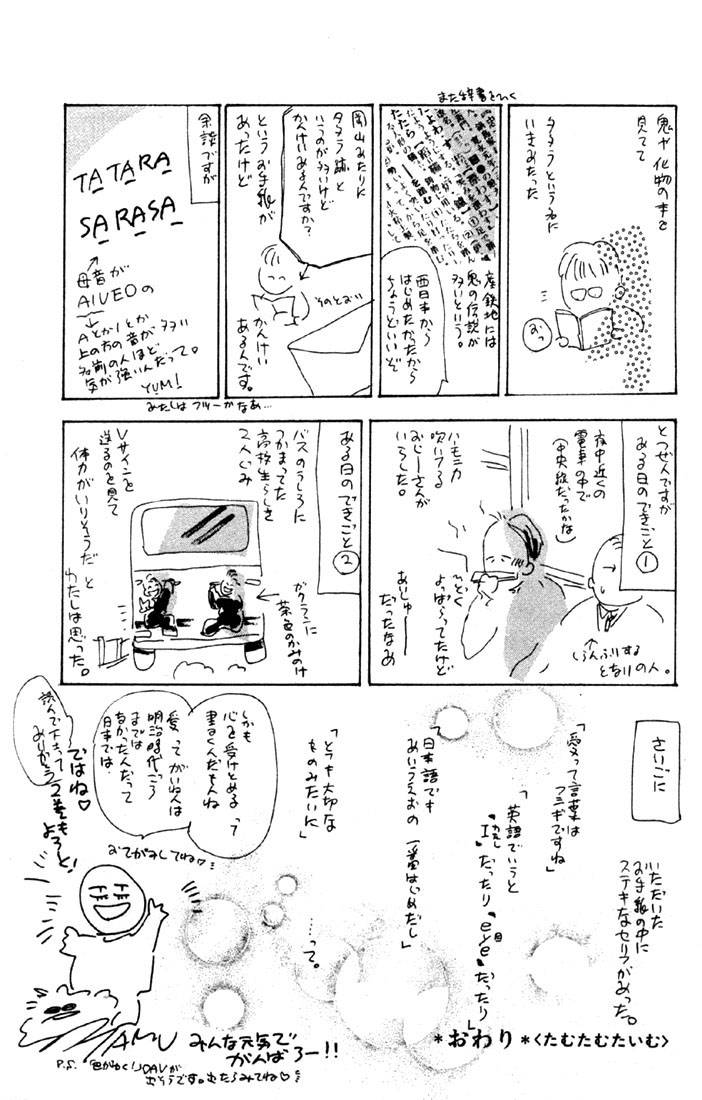 鬼や化物の本を
見てて
タタラという名に
いきあたった
おっ
また辞書をひく
産鉄地には
鬼の伝説が
多いという。
西日本から
はじめたかったから
ちょうどいいぞ
岡山あたりに
タタラ跡と
いうのが多いけど
かんけいあるんですか?
というお手紙が
あったけど
そのとおり
かんけい
あるんです。
余談ですが
TATARA
SARASA
母音が
AIUEOの
AとかIとか
上の方の音が多い
名前の人ほど
気が強いんだって。
YUMI
わたしはフツーかなあ…
とつぜんですが
ある日のできごと①
夜中近くの
電車の中で
(中央線だったかな)
ハモニカ
吹いてる
おじーさんが
いらした。
ひどく
よっぱらってたけど
あいしゅー
だったなあ
しらんふりする
となりの人。
ある日のできごと②
バスのうしろに
つかまってた
高校生らしき
2人ぐみ
ガクランに
茶色のかみのけ
Vサインを
送るのを見て
体力がいりそうだ と
わたしは思った。
さいごに
いただいた
お手紙の中に
ステキなセリフがあった。
「愛って言葉は
フシギですね」
「英語でいうと
"I"私だったり "eye"目だったり」
「日本語でも
あいうえおの 一番はじめだし」
「とても大切な
ものみたいに」
……って。
しかも
心を受けとめるって
書くんだもんね
愛ってがいねんは
明治時代ごろ
までは
日本では
なかったんだって
おてがみしてね♡
読んで下さって
ありがとう
ではね♡
2巻もよろしく!
TAMU
みんな元気で
がんばろー!!
*おわり*<たむたむたいむ>